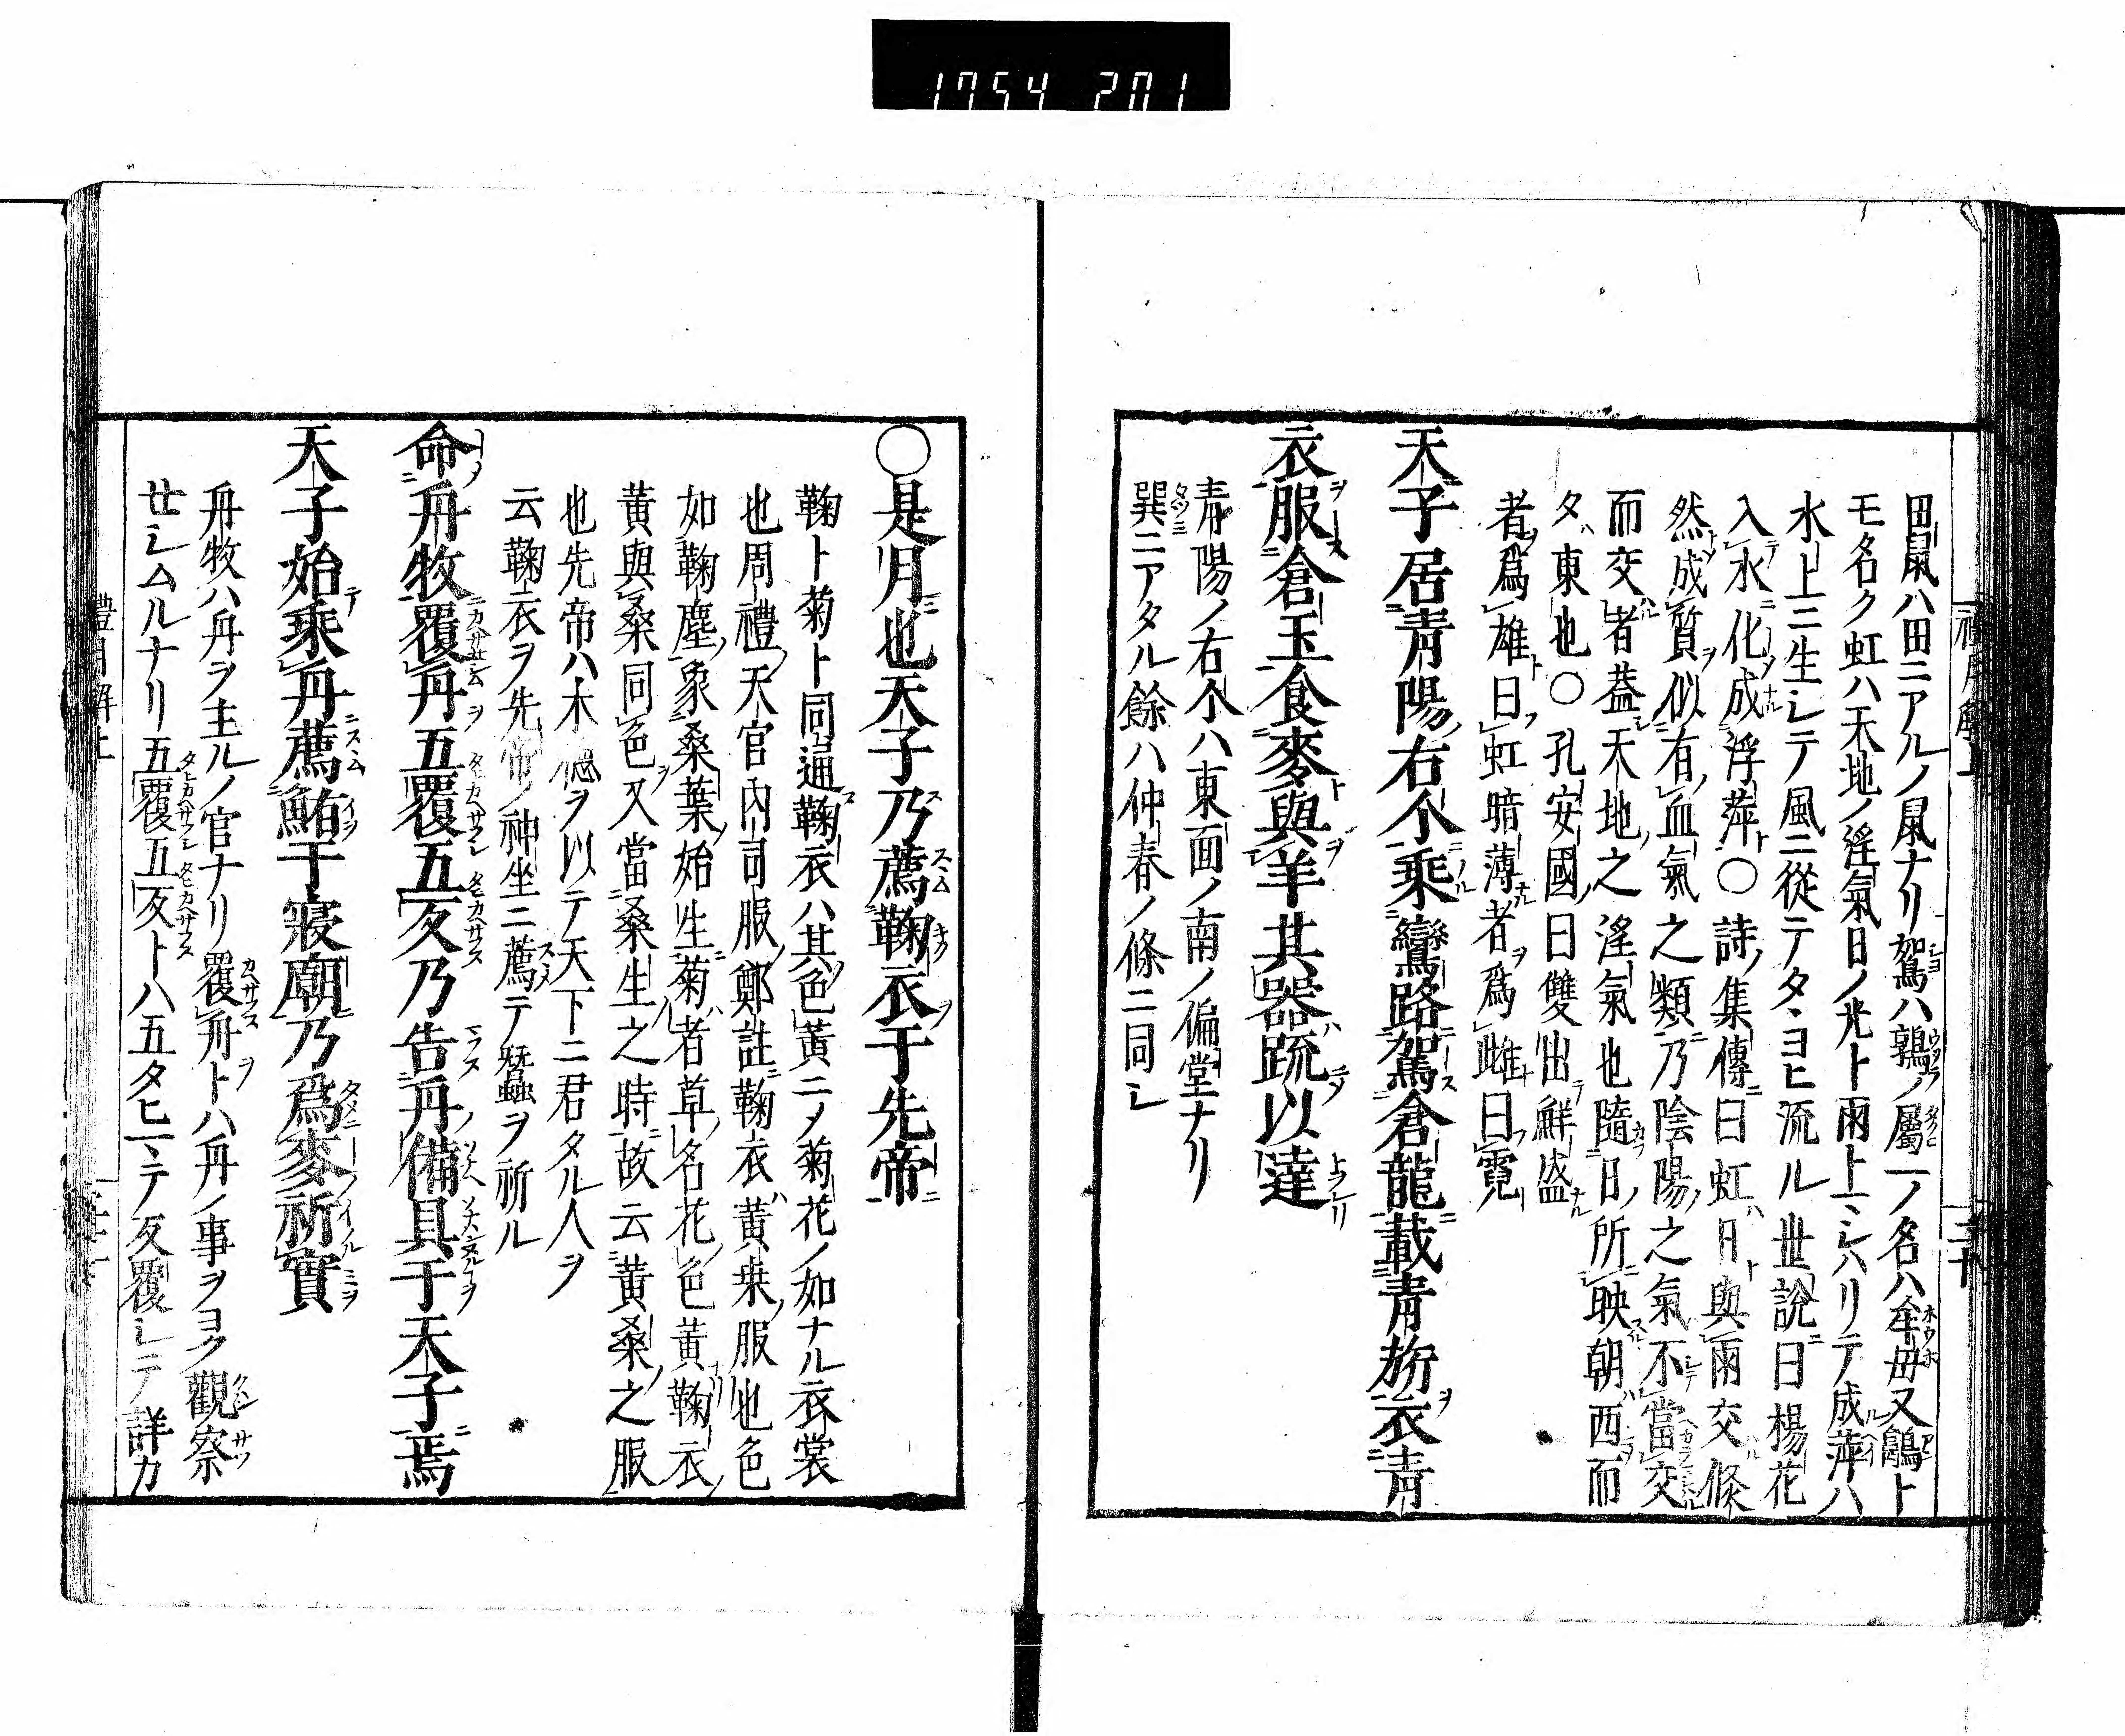 1754 201
田鼠ハ田ニアルノ鼠ナリ鴽ハ鶉ノ屬一ノ名ハ牟毋又鴾ト
モ名ク虹ハ天地ノ淫氣日ノ光ト雨上ニシハリテ成萍ハ
水上ニ生シテ風ニ從テタヽヨヒ流ル世說曰楊花
入水化成浮萍○詩集傳曰虹日與雨交倏
然成質似有血氣之類乃陰陽之氣不當交
而交者葢天地之淫氣也隨日所映朝西而
夕東也○孔安國曰雙出鮮盛
者爲雄曰虹暗薄者爲雌曰霓
天子居青陽右个乘鸞路駕倉龍載青旂衣青
衣服倉玉食麥與羊其器疏以達
青陽ノ右个ハ東面ノ南ノ偏堂ナリ
巽ニアタル餘ハ仲春ノ條ニ同シ
○是月也天子乃薦鞠衣于先帝
鞠ト菊ト同通鞠衣ハ其色黃ニノ菊花ノ如ナル衣裳
也周禮天官內司服鄭註鞠衣黃桒服也色
如鞠塵象桑葉始生菊者草名花色黃鞠衣
黃與桑同色又當桑生之時故云黃桑之服
也先帝ハ木德ヲ以テ天下ニ君タル人ヲ
云鞠衣ヲ先帝ノ神坐ニ薦テ蠶ヲ祈ル
命舟牧覆舟五覆五反乃告舟備具于天子焉
天子始乘舟薦鮪于寢廟乃爲麥祈實
舟牧ハ舟ヲ主ルノ官ナリ覆舟トハ舟ノ事ヲヨク觀察
セシムルナリ五覆五反トハ五タヒマテ反覆シテ詳カ
禮月解上